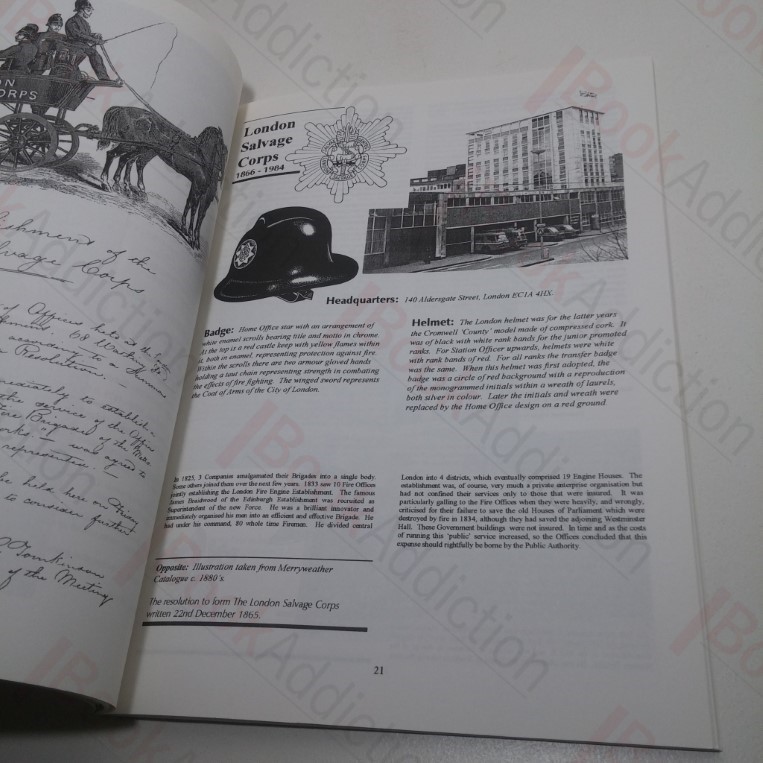 ON
CORPS
of the
Salvage Corps
of the Meeting
London
Salvage
Corps
1866 - 1984
Headquarters: 140 Aldersgate Street, London EC1A 4HX.
Badge: Home Office star with an arrangement of
white enamel scrolls bearing title and motto in chrome
At the top is a red castle keep with yellow flames within
it, both in enamel, representing protection against fire.
Within the scrolls there are two armour gloved hands
holding a taut chain representing strength in combating
the effects of fire fighting. The winged sword represents
the Coat of Arms of the City of London.
Helmet: The London helmet was for the latter years
the Cromwell 'County' model made of compressed cork. It
was of black with white rank bands for the junior promoted
ranks. For Station Officer upwards, helmets were white
with rank bands of red. For all ranks the transfer badge
was the same. When this helmet was first adopted, the
badge was a circle of red background with a reproduction
of the monogrammed initials within a wreath of laurels,
both silver in colour. Later the initials and wreath were
replaced by the Home Office design on a red ground
In 1825, 3 Companies amalgamated their Brigades into a single body.
Some others joined them over the next few years. 1833 saw 10 Fire Offices
jointly establishing the London Fire Engine Establishment. The famous
James Braidwood of the Edinburgh Establishment was recruited as
Superintendant of the new Force. He was a brilliant innovator and
immediately organised his men into an efficient and effective Brigade. He
had under his command, 80 whole time Firemen. He divided central
London into 4 districts, which eventually comprised 19 Engine Houses. The
establishment was, of course, very much a private enterprise organisation but
had not confined their services only to those that were insured. It was
particularly galling to the Fire Offices when they were heavily, and wrongly,
criticised for their failure to save the old Houses of Parliament which were
destroyed by fire in 1834, although they had saved the adjoining Westminster
Hall. These Government buildings were not insured. In time and as the costs
of running this 'public' service increased, so the Offices concluded that this
expense should rightfully be borne by the Public Authority.
Opposite: Illustration taken from Merryweather
Catalogue c. 1880's.
The resolution to form The London Salvage Corps
written 22nd December 1865.
21
BookAddiction